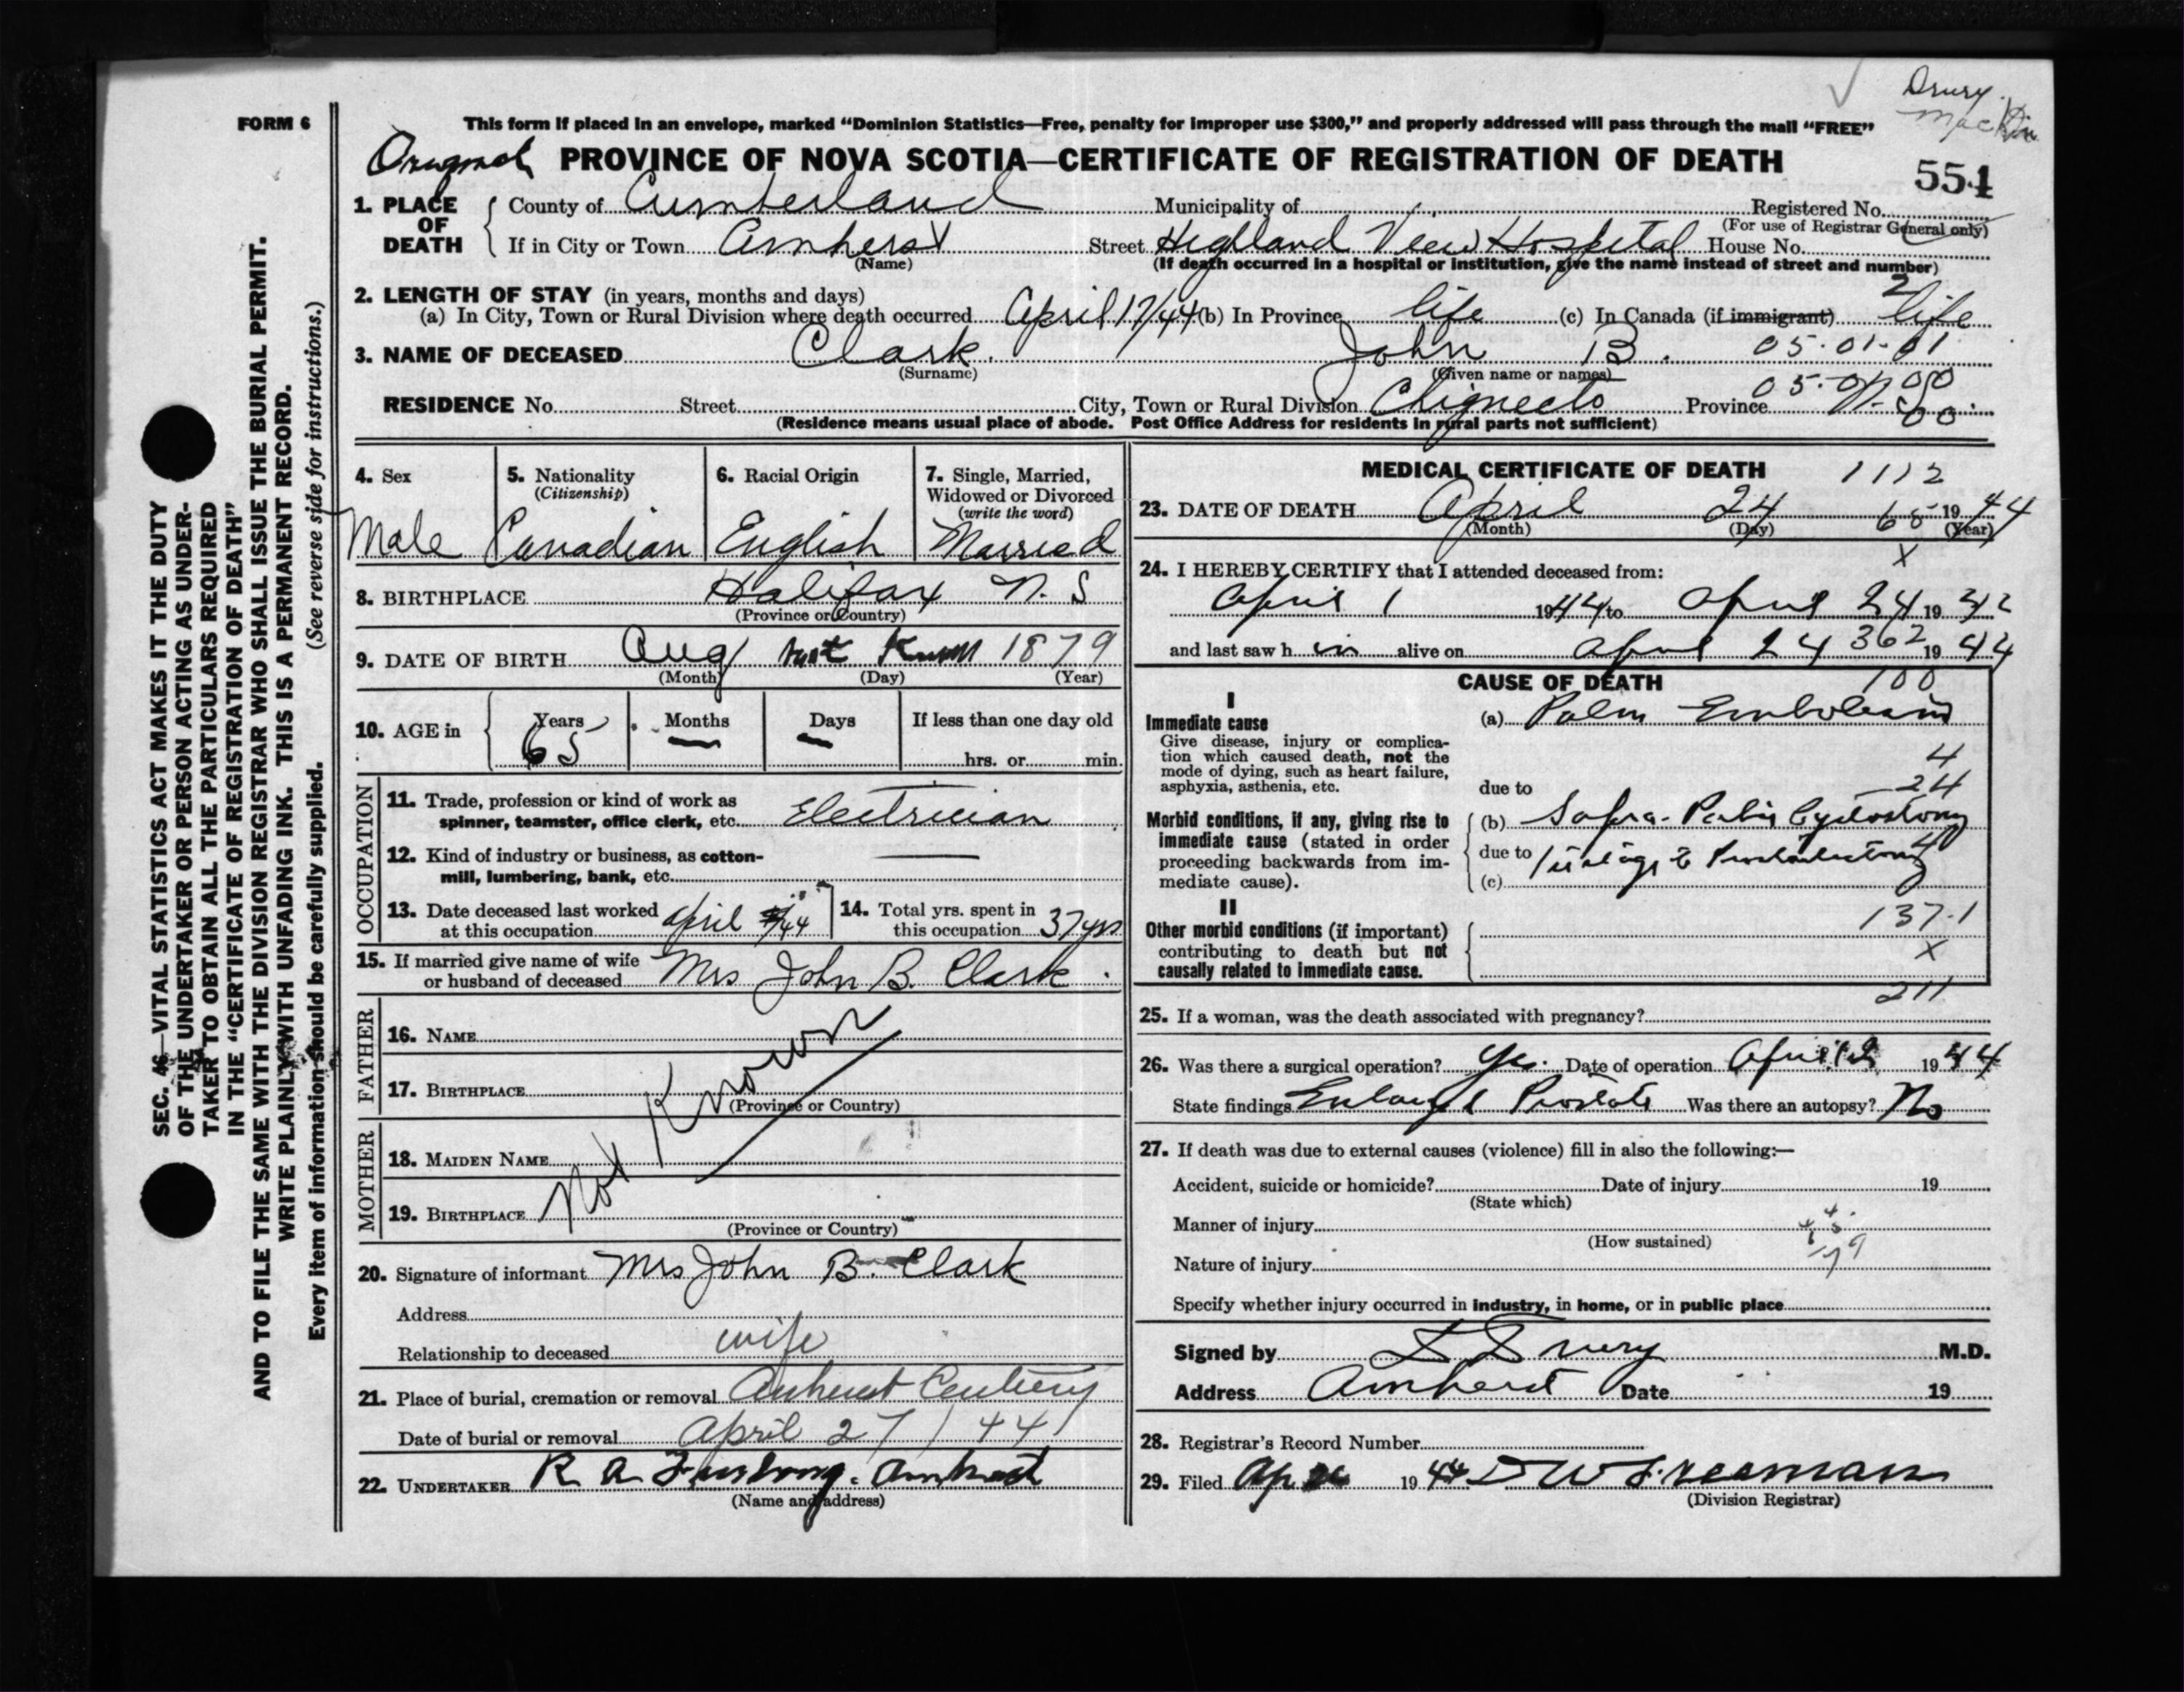 Drury
FORM 6
This form if placed in an envelope, marked "Dominion Statistics—Free, penalty for improper use $300," and properly addressed will pass through the mail "FREE"
PROVINCE OF NOVA SCOTIA—CERTIFICATE OF REGISTRATION OF DEATH
554
1. PLACE OF DEATH County of Cumberland Municipality of Registered No.
(For use of Registrar General only)
If in City or Town Amherst Street Highland View Hospital House No.
(Name) (If death occurred in a hospital or institution, give the name instead of street and number)
2. LENGTH OF STAY (in years, months and days)
(a) In City, Town or Rural Division where death occurred April 17/44 (b) In Province life (c) In Canada (if immigrant) life
3. NAME OF DECEASED Clark John B. 05.01.01
(Surname) (Given name or names)
RESIDENCE No. Street City, Town or Rural Division Chignecto Province N.S.
(Residence means usual place of abode. Post Office Address for residents in rural parts not sufficient)
4. Sex Male
5. Nationality (Citizenship) Canadian
6. Racial Origin English
7. Single, Married, Widowed or Divorced (write the word) Married
8. BIRTHPLACE Halifax N.S
(Province or Country)
9. DATE OF BIRTH Aug not Known 1879
(Month) (Day) (Year)
10. AGE in Years 65 Months — Days — If less than one day old
hrs. or min.
OCCUPATION
11. Trade, profession or kind of work as spinner, teamster, office clerk, etc. Electrician
12. Kind of industry or business, as cotton-mill, lumbering, bank, etc. —
13. Date deceased last worked at this occupation April /44
14. Total yrs. spent in this occupation 37 yrs
15. If married give name of wife or husband of deceased Mrs John B. Clark
FATHER
16. NAME
17. BIRTHPLACE
(Province or Country)
Not Known
MOTHER
18. MAIDEN NAME
19. BIRTHPLACE
(Province or Country)
20. Signature of informant Mrs John B. Clark
Address
Relationship to deceased wife
21. Place of burial, cremation or removal Amherst Cemetery
Date of burial or removal April 27/44
22. UNDERTAKER R A Furlong. Amherst
(Name and address)
MEDICAL CERTIFICATE OF DEATH 1112
23. DATE OF DEATH April 24 65 1944
(Month) (Day) (Year)
X
24. I HEREBY CERTIFY that I attended deceased from:
April 1 1944 to April 24 19
and last saw h im alive on April 24 362 1944
CAUSE OF DEATH 100
I
Immediate cause
Give disease, injury or complication which caused death, not the mode of dying, such as heart failure, asphyxia, asthenia, etc.
(a) Embolism
4
24
due to
Morbid conditions, if any, giving rise to immediate cause (stated in order proceeding backwards from immediate cause).
(b) Supra-Pubic Cystostomy
due to
(c)
II
Other morbid conditions (if important) contributing to death but not causally related to immediate cause.
137.1
X
211
25. If a woman, was the death associated with pregnancy?
26. Was there a surgical operation? Yes. Date of operation April 1944
State findings Enlarged Prostate Was there an autopsy? No
27. If death was due to external causes (violence) fill in also the following:—
Accident, suicide or homicide? Date of injury 19
(State which)
Manner of injury
(How sustained)
Nature of injury
Specify whether injury occurred in industry, in home, or in public place
Signed by D Drury M.D.
Address Amherst Date 19
28. Registrar's Record Number
29. Filed Ap 1944 D W Freeman
(Division Registrar)
SEC. 46—VITAL STATISTICS ACT MAKES IT THE DUTY
OF THE UNDERTAKER OR PERSON ACTING AS UNDER-
TAKER TO OBTAIN ALL THE PARTICULARS REQUIRED
IN THE "CERTIFICATE OF REGISTRATION OF DEATH"
AND TO FILE THE SAME WITH THE DIVISION REGISTRAR WHO SHALL ISSUE THE BURIAL PERMIT.
WRITE PLAINLY WITH UNFADING INK. THIS IS A PERMANENT RECORD.
Every item of information should be carefully supplied. (See reverse side for instructions.)